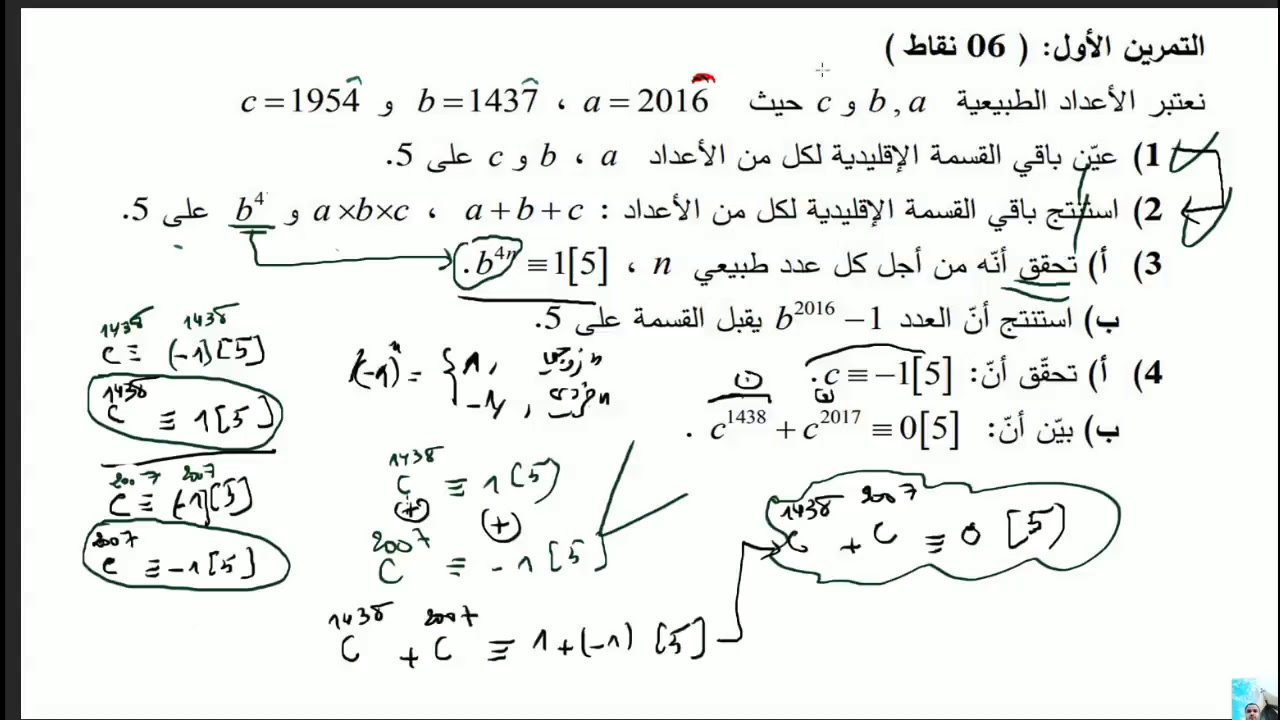 التمرين الأول: ( 06 نقاط )
نعتبر الأعداد الطبيعية a , b و c حيث a = 2016 ، b = 1437 و c = 1954
1) عيّن باقي القسمة الإقليدية لكل من الأعداد a ، b و c على 5.
2) استنتج باقي القسمة الإقليدية لكل من الأعداد : a + b + c ، a × b × c و b⁴ على 5.
3) أ) تحقق أنّه من أجل كل عدد طبيعي n ، b⁴ⁿ ≡ 1[5].
ب) استنتج أنّ العدد b²⁰¹⁶ − 1 يقبل القسمة على 5.
4) أ) تحقّق أنّ: c ≡ −1[5].
ب) بيّن أنّ: c¹⁴³⁸ + c²⁰¹⁷ ≡ 0[5] .
c¹⁴³⁸ ≡ (-1)¹⁴³⁸ [5]
c¹⁴³⁸ ≡ 1 [5]
c²⁰⁰⁷ ≡ (-1)²⁰⁰⁷ [5]
c²⁰⁰⁷ ≡ -1 [5]
(-1)ⁿ = { 1, n زوجي
-1, n فردي
c¹⁴³⁸ ≡ 1 [5]
(+) (+)
c²⁰⁰⁷ ≡ -1 [5]
c¹⁴³⁸ + c²⁰⁰⁷ ≡ 1 + (-1) [5]
c¹⁴³⁸ + c²⁰⁰⁷ ≡ 0 [5]